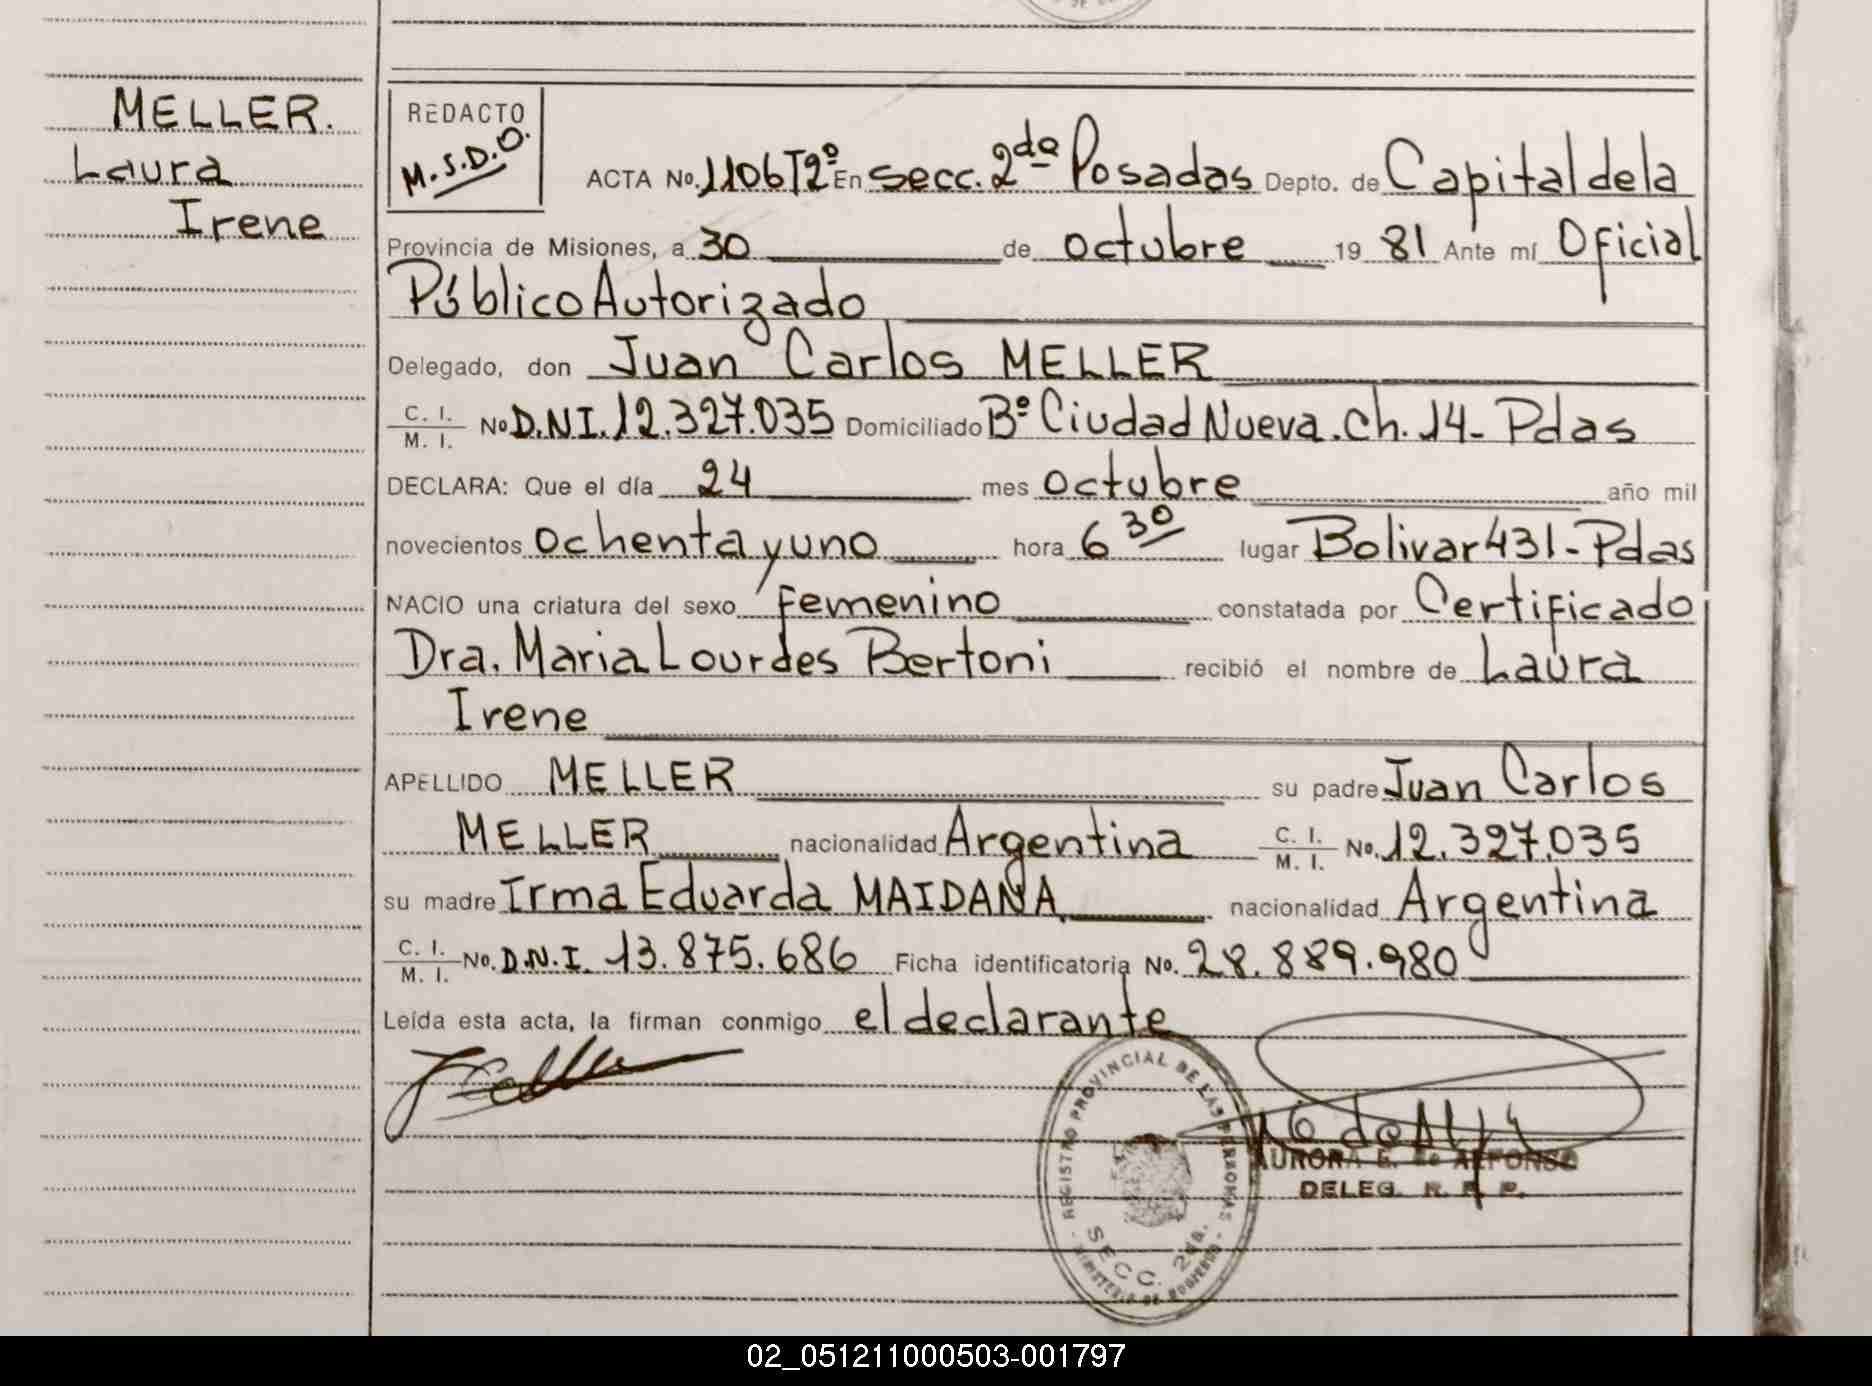 MELLER.
Laura
Irene
REDACTO
M.S.D.O.
ACTA No. 1106 T2º En secc. 2da Posadas Depto. de Capital de la
Provincia de Misiones, a 30 de octubre 19 81 Ante mí Oficial
Público Autorizado
Delegado, don Juan Carlos MELLER
C. I. / M. I. No D.N.I. 12.327.035 Domiciliado Bº Ciudad Nueva. ch. 14 - Pdas
DECLARA: Que el día 24 mes octubre año mil
novecientos ochenta y uno hora 6 30 lugar Bolivar 431 - Pdas
NACIO una criatura del sexo femenino constatada por Certificado
Dra. Maria Lourdes Bertoni recibió el nombre de Laura
Irene
APELLIDO MELLER su padre Juan Carlos
MELLER nacionalidad Argentina C. I. / M. I. No. 12.327.035
su madre Irma Eduarda MAIDANA nacionalidad Argentina
C. I. / M. I. No. D.N.I. 13.875.686 Ficha identificatoria No. 28.889.980
Leída esta acta, la firman conmigo el declarante
REGISTRO PROVINCIAL DE LAS PERSONAS
SECC. 2da.
MINISTERIO DE GOBIERNO
AURORA E. de ALFONSO
DELEG. R. P. P.
02_051211000503-001797